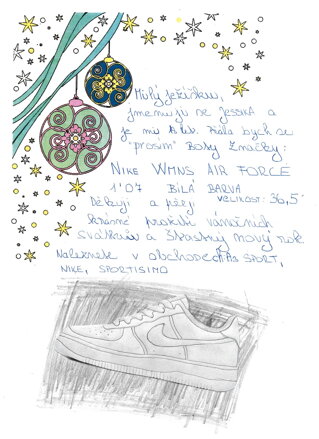 Milý ježíšku,
jmenuji se Jessika a
je mi let. Ráda bych se
"prosím" Boty Značky:
NIKE WMNS AIR FORCE
1'07 BÍLÁ BARVA
VELIKOST: 36,5
Děkuji a přeji
krásné prožití vánočních
svátků a šťastný nový rok
Naleznete v obchodech: A3 SPORT,
NIKE, SPORTISIMO